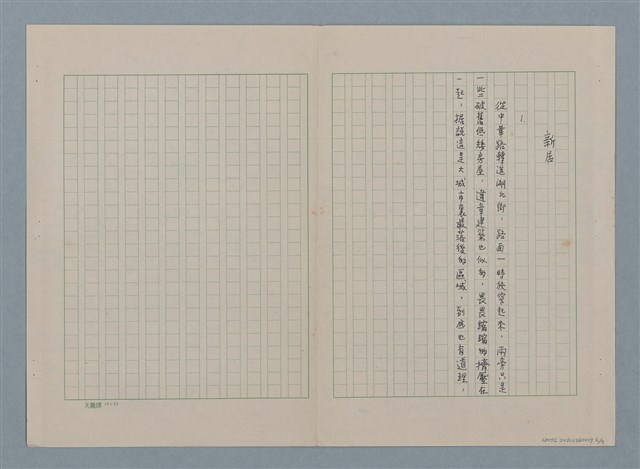 新居
1.
從中華路轉進湖北街，路面一時狹窄起來，兩旁只是
一些破舊低矮房屋，違章建築也似的，畏畏縮縮的擠壓在
一起，据說這是大城市裏最落後的區域，到底也有道理，
天龍牌